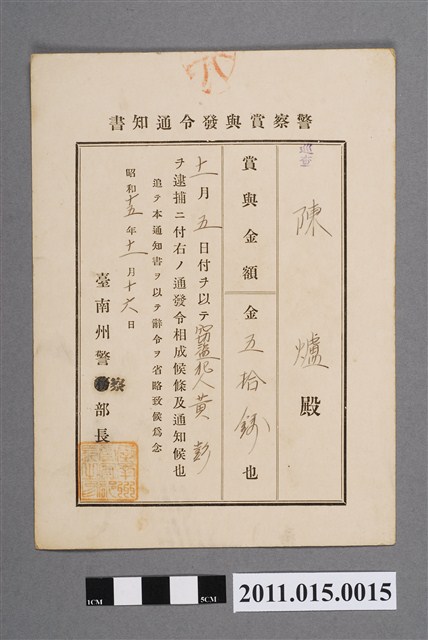 警察賞與發令通知書
巡査
陳爐殿
賞與金額 金五拾錢也
十一月五日付ヲ以テ窃盜犯人黃彭
ヲ逮捕ニ付右ノ通發令相成候條及通知候也
追テ本通知書ヲ以テ辭令ヲ省略致候爲念
昭和十五年十一月十六日
臺南州警察部長
1CM
5CM
2011.015.0015